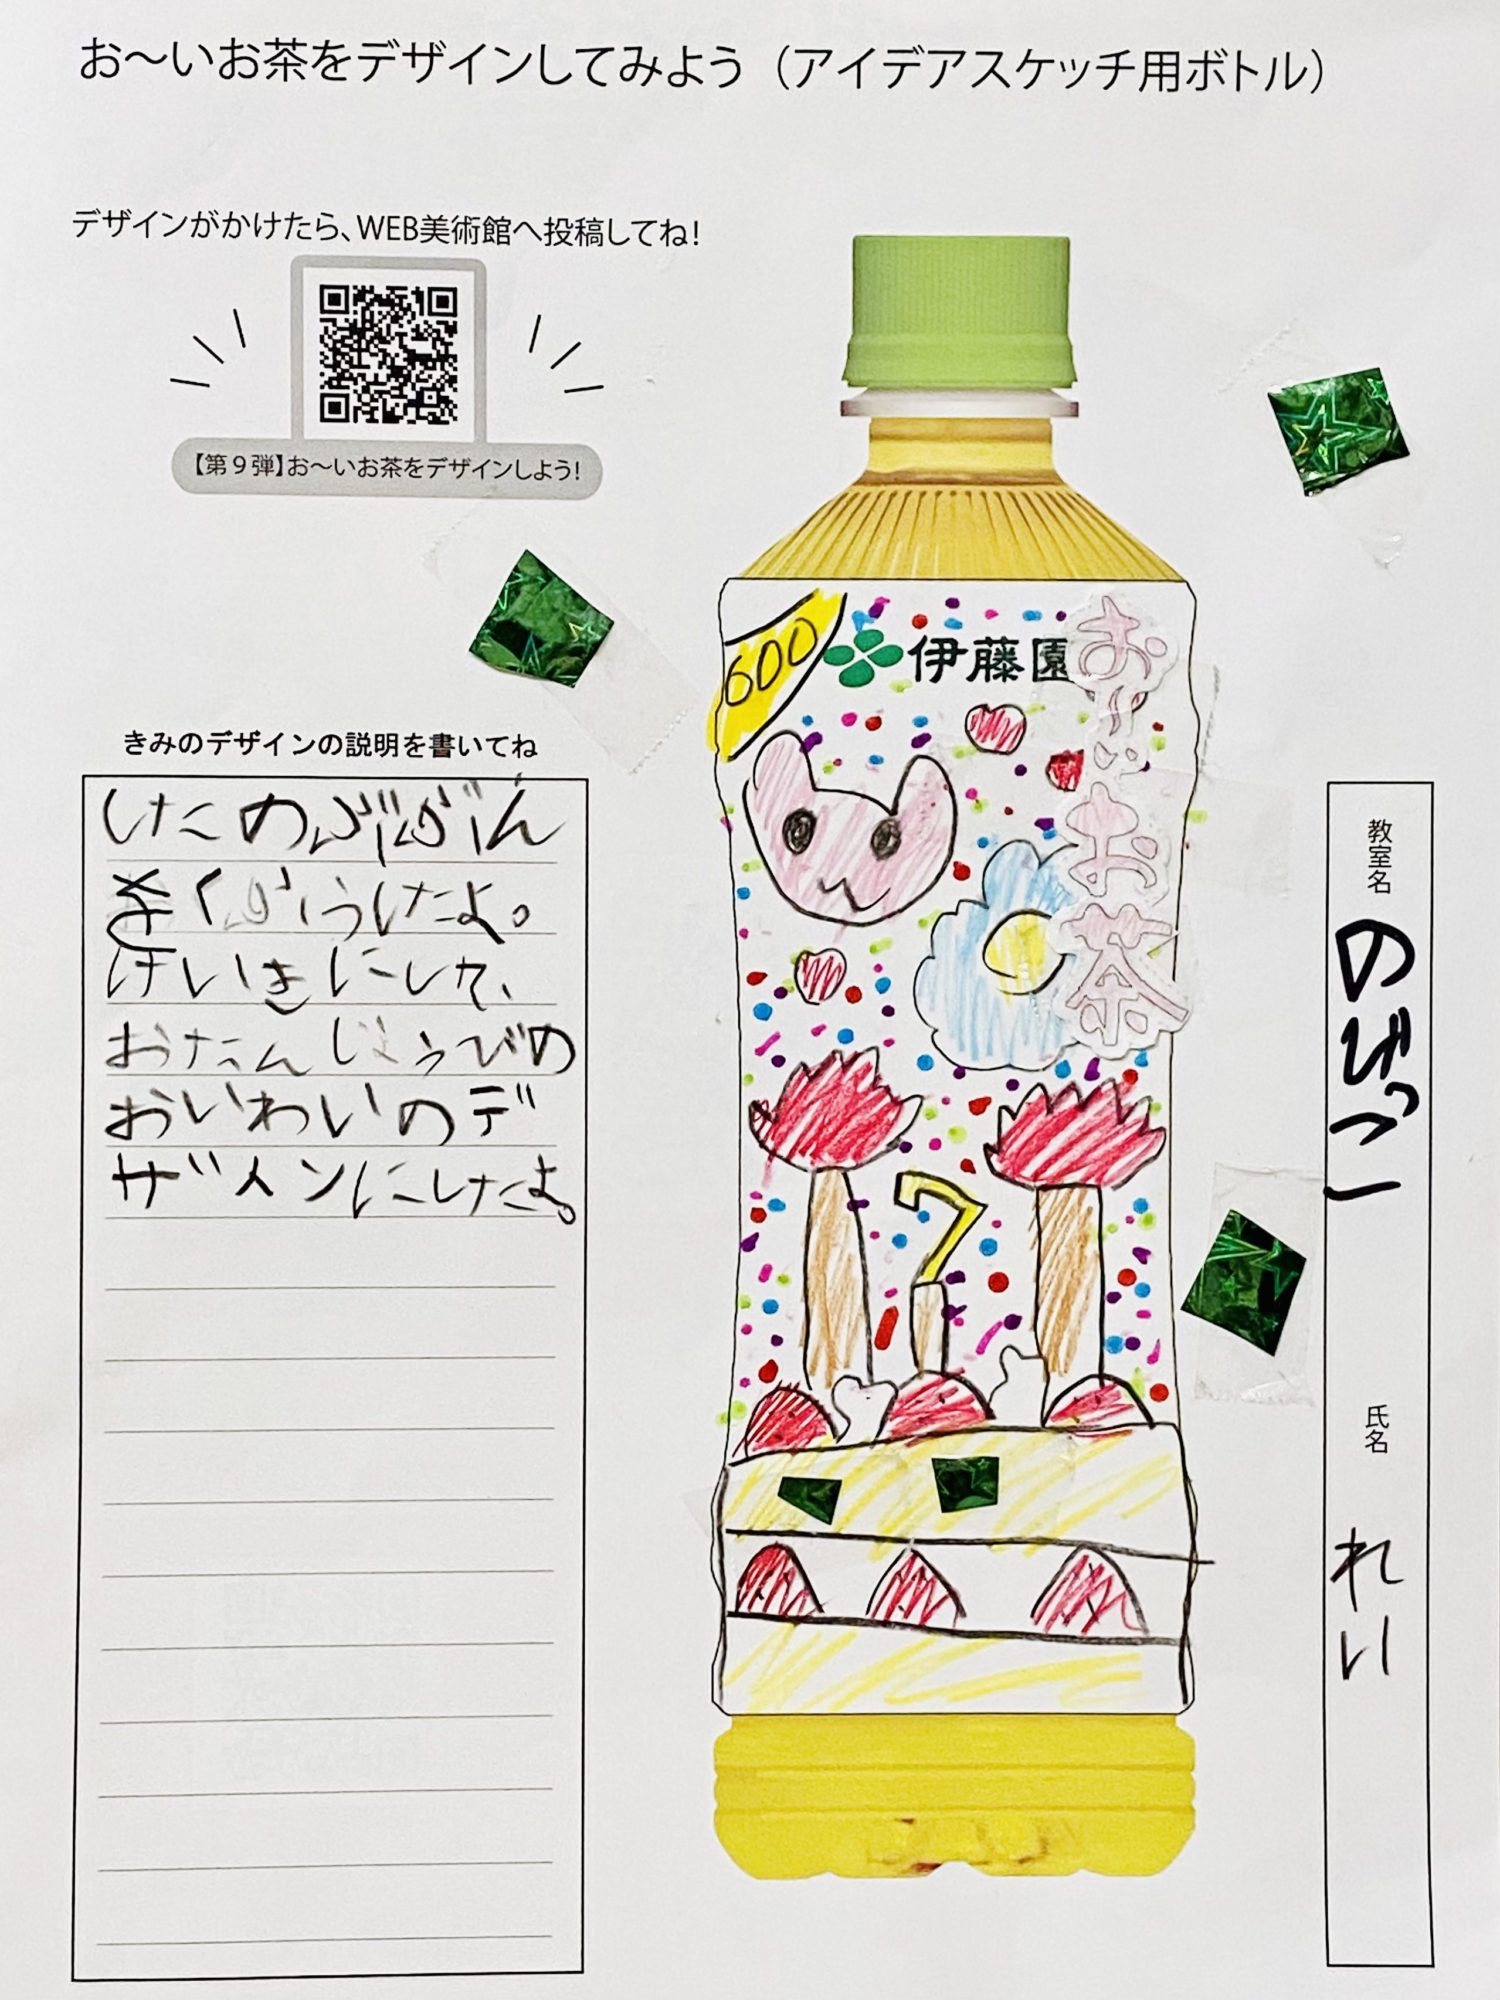 お～いお茶をデザインしてみよう（アイデアスケッチ用ボトル）
デザインがかけたら、WEB美術館へ投稿してね！
【第９弾】お～いお茶をデザインしよう!
きみのデザインの説明を書いてね
したのぶぶん
をくふうしたよ。
けいきにして、
おたんじょうびの
おいわいのデ
ザインにしたよ。
600
伊藤園
お～いお茶
7
教室名
のびっこ
氏名
れい